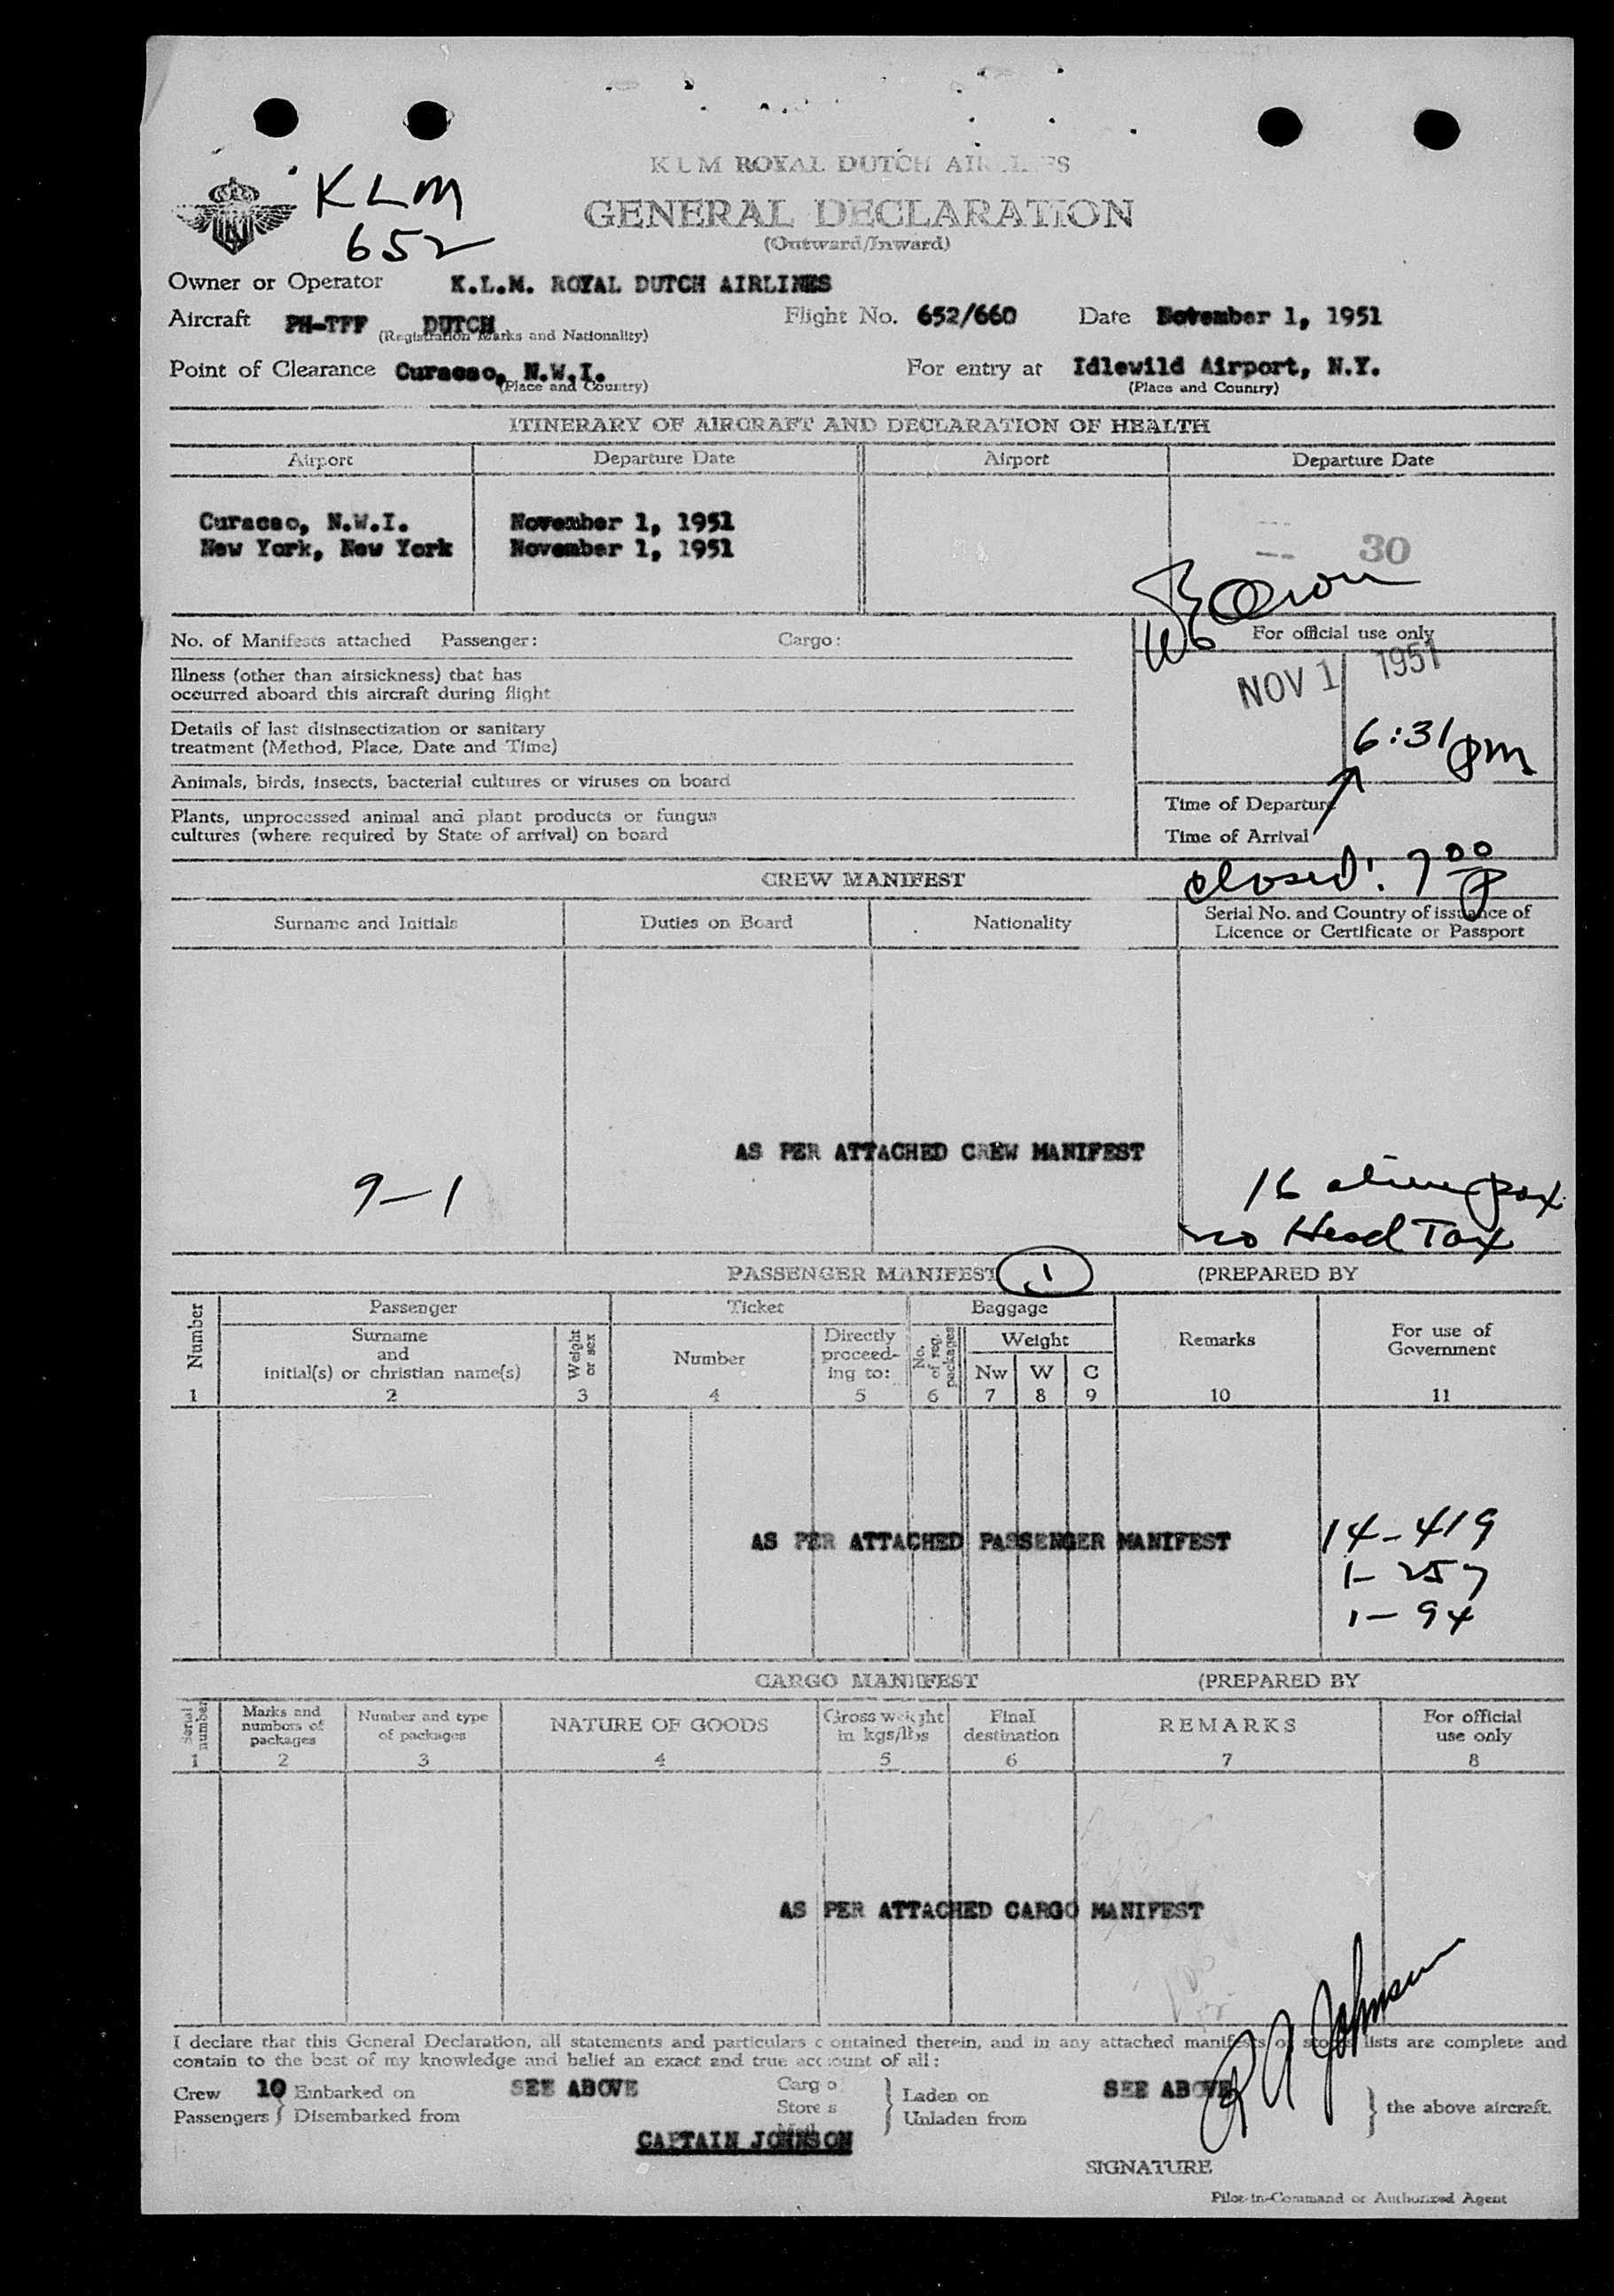 KLM ROYAL DUTCH AIRLINES
KLM
652
GENERAL DECLARATION
(Outward/Inward)
Owner or Operator K.L.M. ROYAL DUTCH AIRLINES
Aircraft PH-TFF DUTCH Flight No. 652/660 Date November 1, 1951
(Registration Marks and Nationality)
Point of Clearance Curacao, N.W.I. For entry at Idlewild Airport, N.Y.
(Place and Country) (Place and Country)
ITINERARY OF AIRCRAFT AND DECLARATION OF HEALTH
Airport Departure Date Airport Departure Date
Curacao, N.W.I. November 1, 1951
New York, New York November 1, 1951
-- 30
No. of Manifests attached Passenger: Cargo:
For official use only
Illness (other than airsickness) that has
occurred aboard this aircraft during flight
NOV 1 1951
Details of last disinsectization or sanitary
treatment (Method, Place, Date and Time)
6:31 pm
Animals, birds, insects, bacterial cultures or viruses on board
Plants, unprocessed animal and plant products or fungus
cultures (where required by State of arrival) on board
Time of Departure
Time of Arrival
closed: 7 00 p
CREW MANIFEST
Surname and Initials Duties on Board Nationality Serial No. and Country of issuance of
Licence or Certificate or Passport
AS PER ATTACHED CREW MANIFEST
9-1
16 alien pax
no Head Tax
PASSENGER MANIFEST 1 (PREPARED BY
Number Passenger Ticket Baggage Remarks For use of
Government
Surname
and
initial(s) or christian name(s)
Weight
or sex
Number
Directly
proceed-
ing to:
No.
of reg.
packages
Weight
Nw W C
1 2 3 4 5 6 7 8 9 10 11
AS PER ATTACHED PASSENGER MANIFEST
14-419
1-257
1-94
CARGO MANIFEST (PREPARED BY
Serial
number
Marks and
numbers of
packages
Number and type
of packages
NATURE OF GOODS
Gross weight
in kgs/lbs
Final
destination
REMARKS
For official
use only
1 2 3 4 5 6 7 8
AS PER ATTACHED CARGO MANIFEST
R A Johnson
I declare that this General Declaration, all statements and particulars contained therein, and in any attached manifests or stores lists are complete and
contain to the best of my knowledge and belief an exact and true account of all:
Crew 10 Embarked on SEE ABOVE Cargo Laden on SEE ABOVE the above aircraft.
Passengers Disembarked from Stores Unladen from
CAPTAIN JOHNSON
SIGNATURE
Pilot-in-Command or Authorized Agent